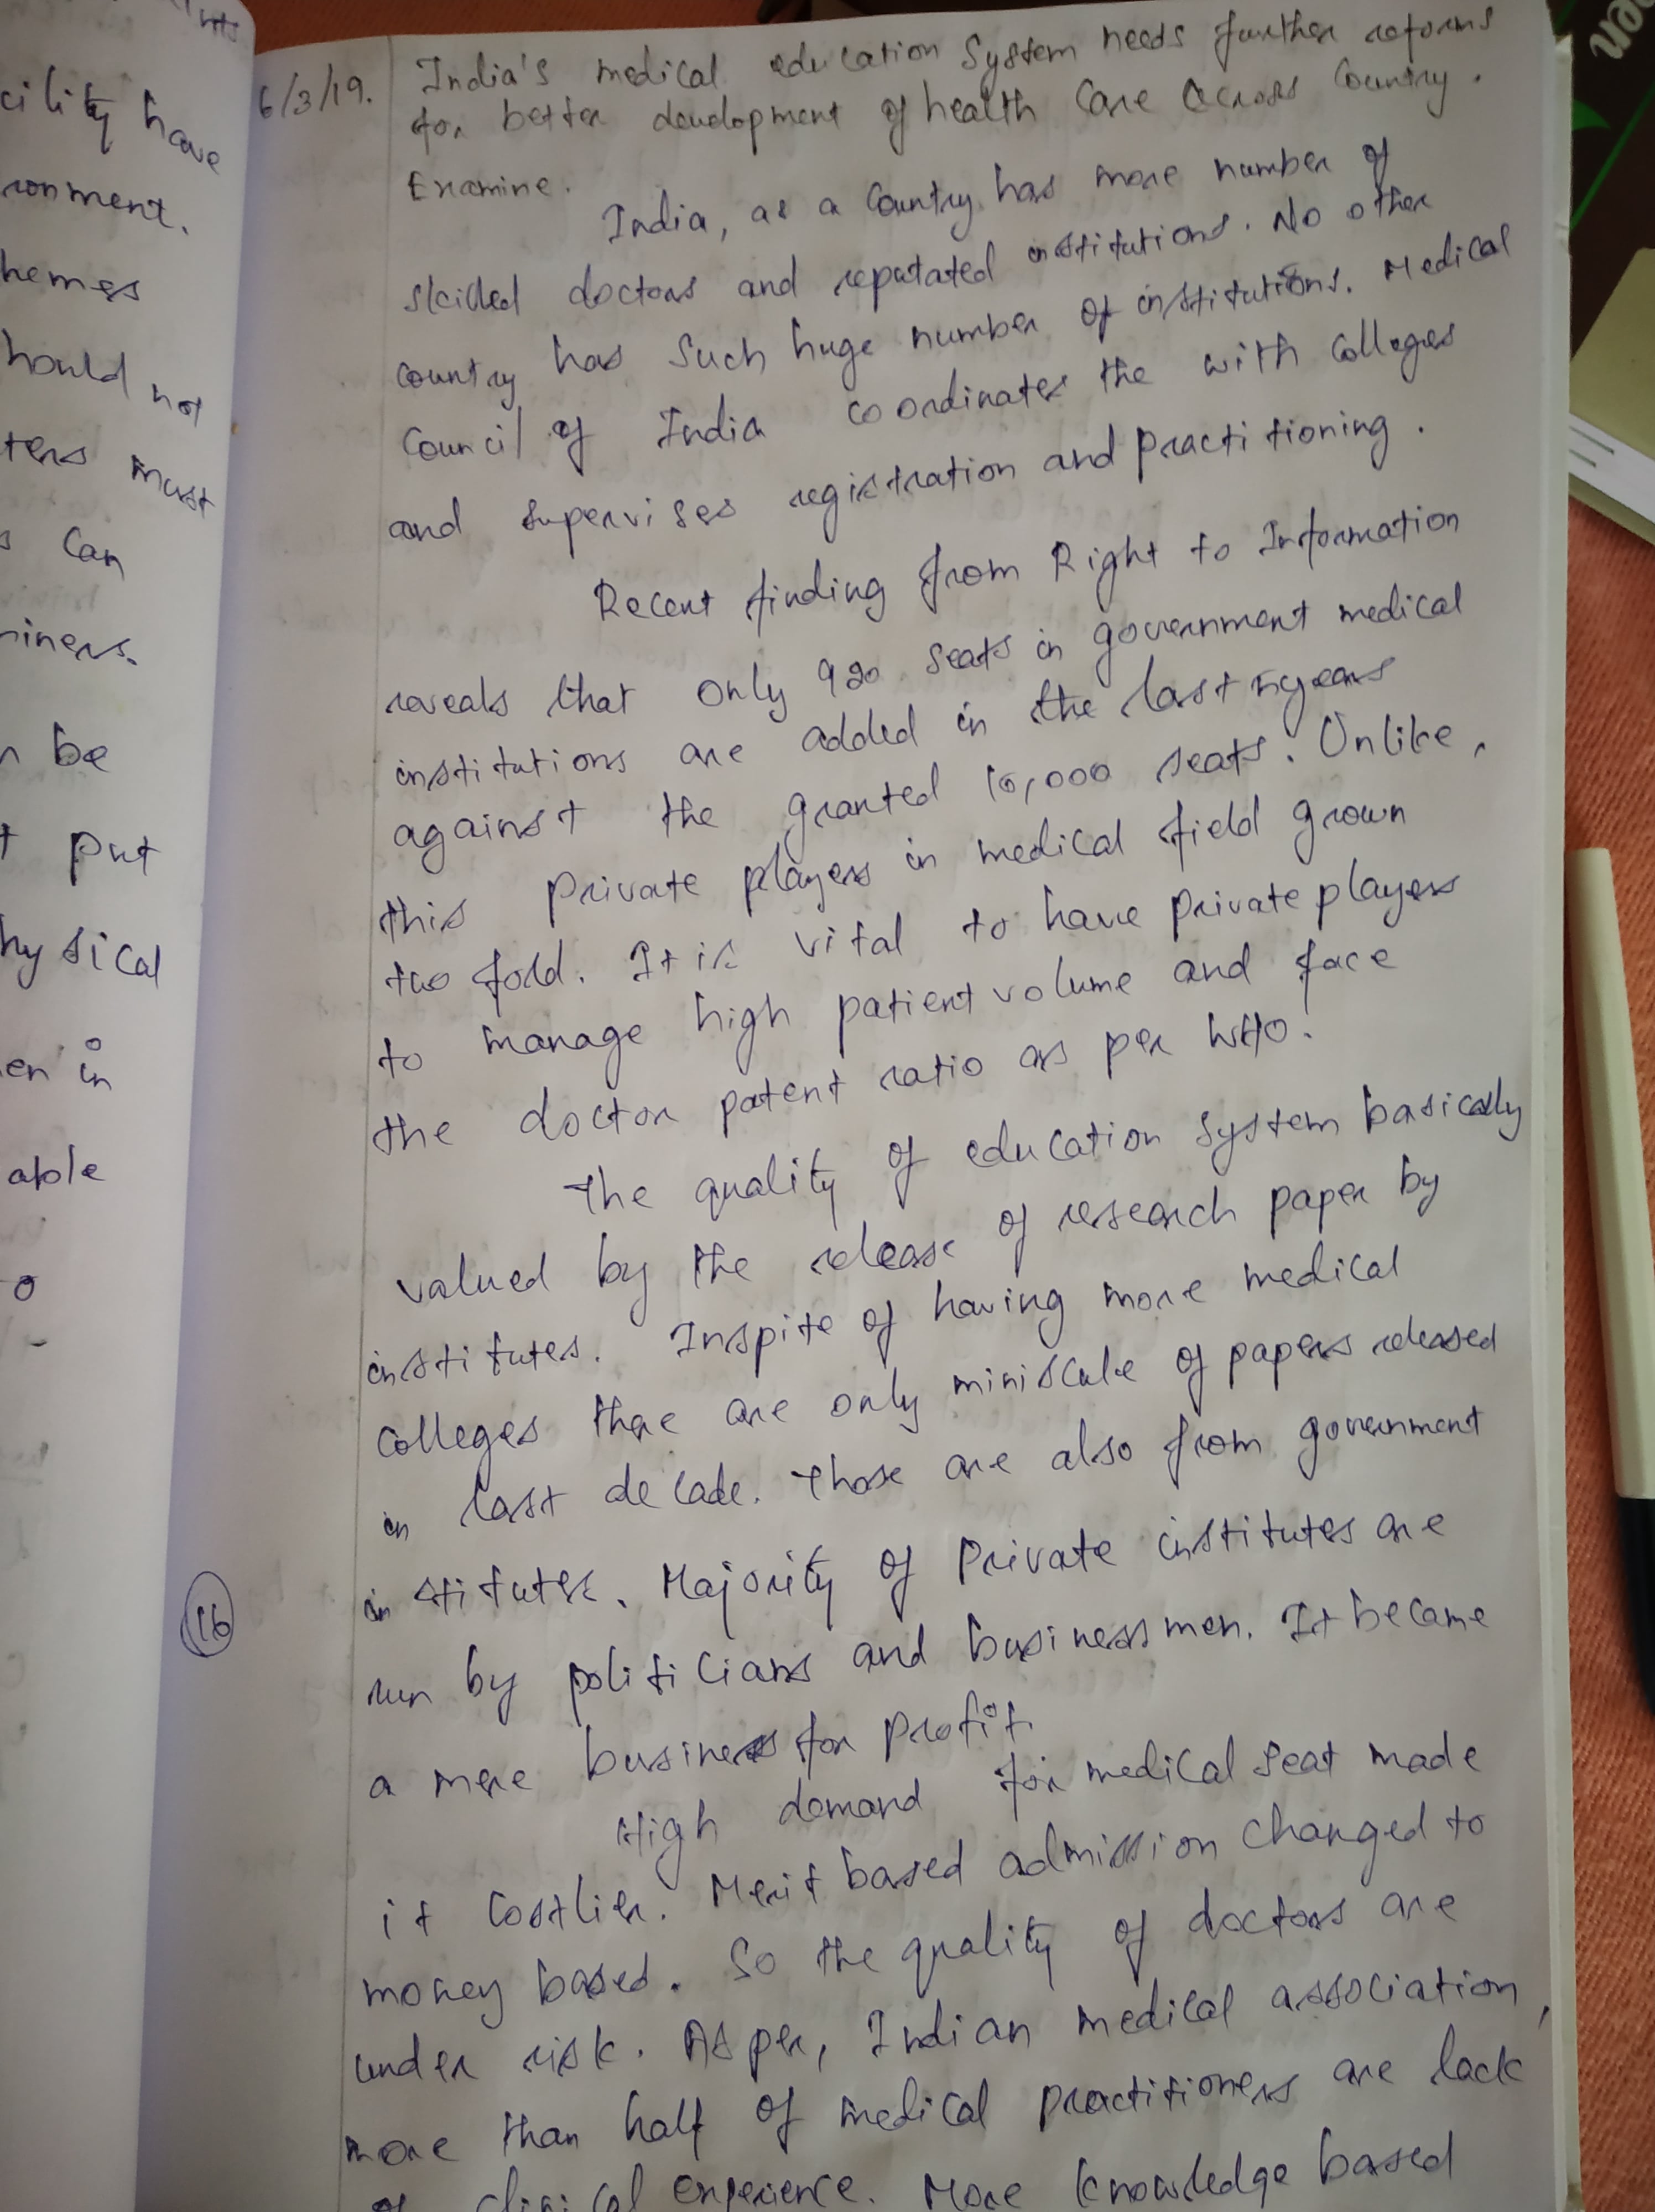 nts
cility have
ronment.
hemes
hould not
ters must
s can
iners.
n be
t put
hysical
en in
able
o
6/3/19. India's medical education System needs further reforms
for better development of health Care across Country.
Examine.
India, as a Country has more number of
skilled doctors and reputated institutions. No other
country has such huge number of institutions. Medical
Council of India coordinates the with Colleges
and supervises registration and practitioning.
Recent finding from Right to Information
reveals that only 920 seats in government medical
institutions are added in the last 5 years
against the granted 10,000 seats. Unlike,
this private players in medical field grown
two fold. It is vital to have private players
to manage high patient volume and face
the doctor patent ratio as per WHO.
The quality of education System basically
valued by the release of research paper by
institutes. Inspite of having more medical
Colleges there are only miniscule of papers released
in last decade. Those are also from government
institutes. Majority of Private institutes are
run by politicians and businessmen. It became
a mere business for profit.
High demand for medical seat made
it Costlier. Merit based admission changed to
money based. So the quality of doctors are
under risk. As per, Indian medical association,
more than half of medical practitioners are lack
of clinical experience. More knowledge based
16